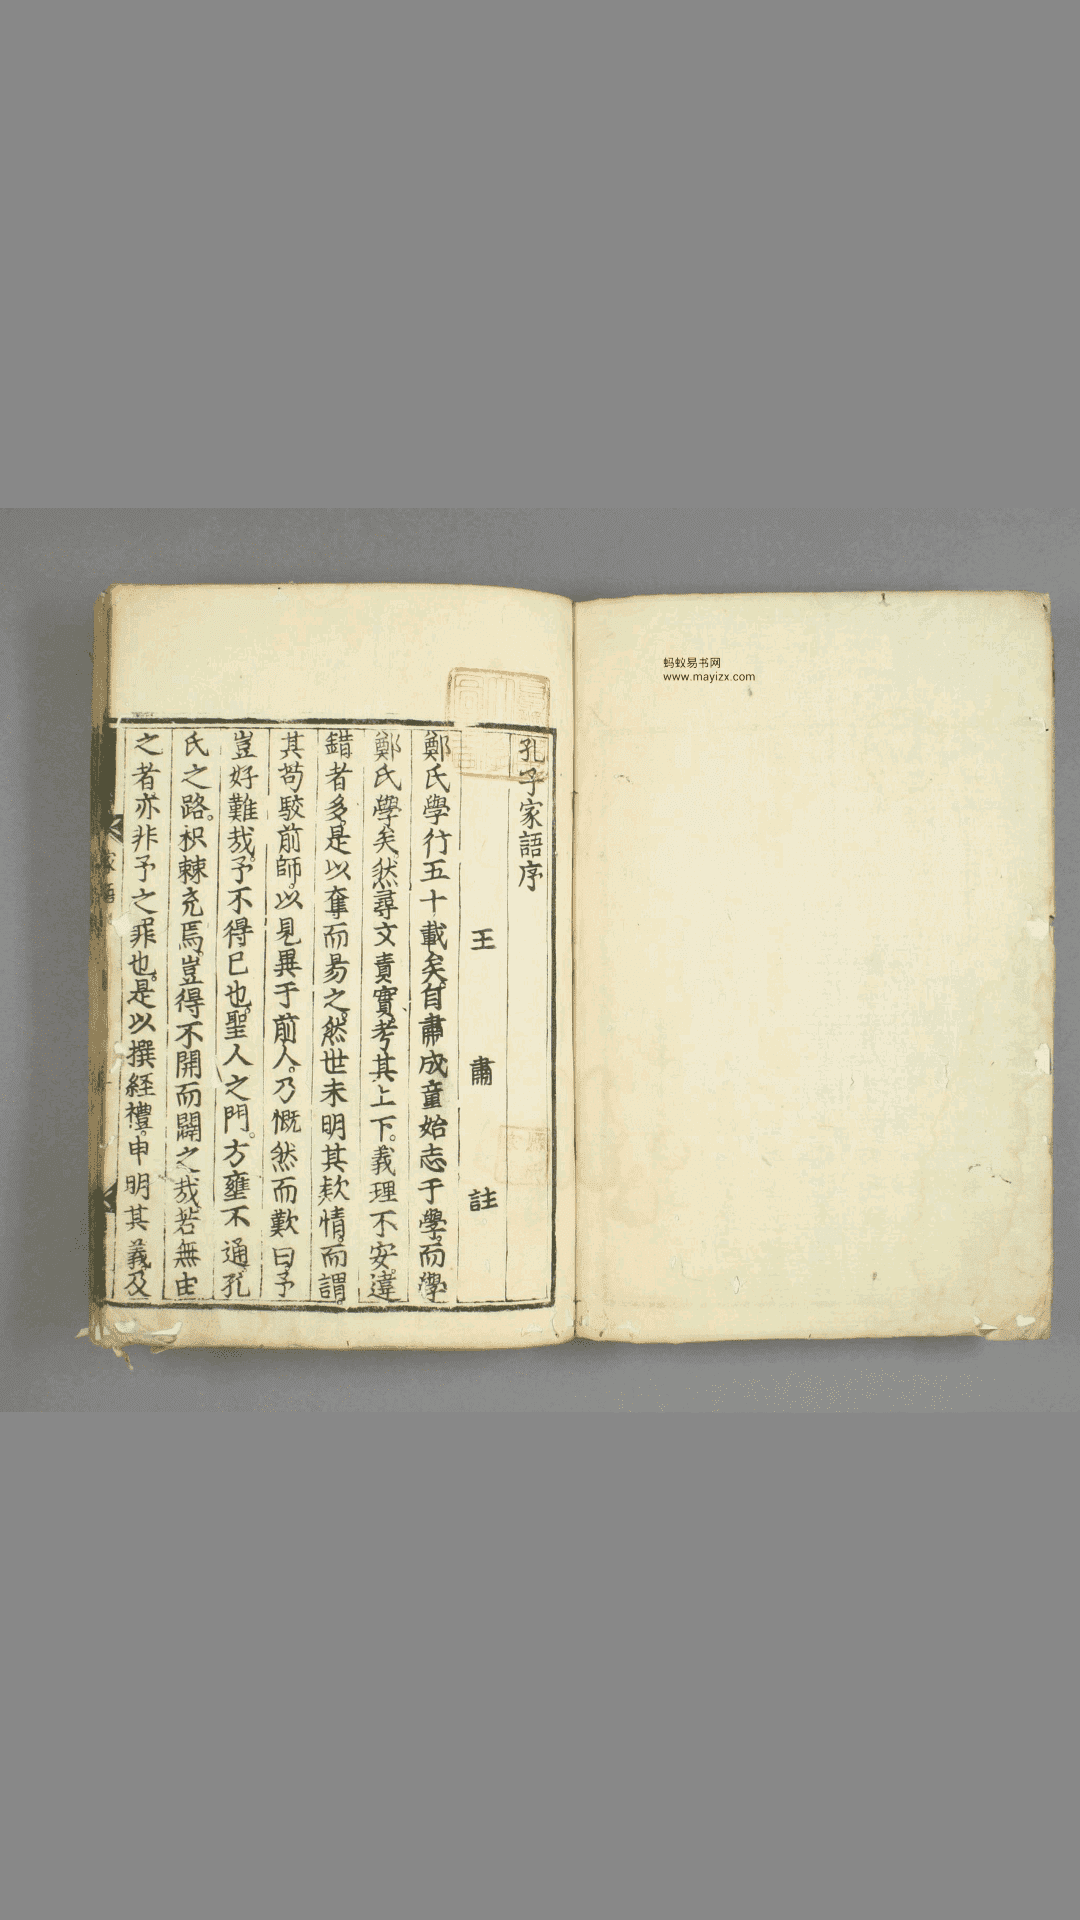 孔子家語序
王肅註
鄭氏學行五十載矣。自肅成童始志于學。而學
鄭氏學矣。然尋文責實。考其上下。義理不安。違
錯者多。是以奪而易之。然世未明其欵情。而謂。
其苟駮前師。以見異于前人。乃慨然而歎曰。予
豈好難哉。予不得已也。聖人之門。方壅不通。孔
氏之路。枳棘充焉。豈得不開而闢之哉。若無由
之者。亦非予之罪也。是以撰経禮。申明其義。及
蚂蚁易书网
www.mayizx.com